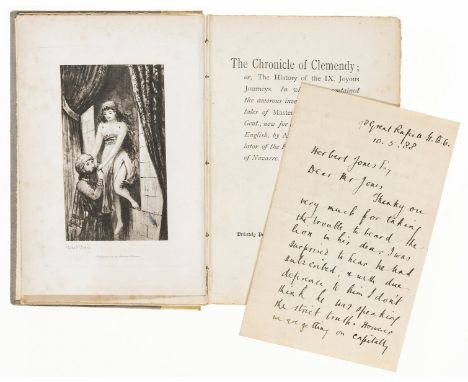 The Chronicle of Clemendy;
or, The History of the IX. Joyous
Journeys. In which are contained
the amorous inve
tales of Master
Gent., now for
English, by
lator of the H
of Navarre.
Privately P
Great Russell St. W.C.
10. 5. 88
Herbert Jones Esq
Dear Mr Jones
Thank you
very much for taking
the trouble to beard the
lion in his den. I was
surprised to hear he had
subscribed; & with due
deference to him I don't
think he was speaking
the strict truth. However
we are getting on capitally